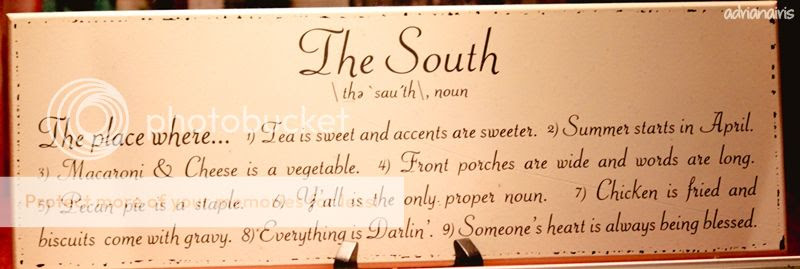 adrianairis
The South
\thə ˋsau̇th\, noun
The place where... 1) Tea is sweet and accents are sweeter. 2) Summer starts in April.
3) Macaroni & Cheese is a vegetable. 4) Front porches are wide and words are long.
5) Pecan pie is a staple. 6) Y'all is the only proper noun. 7) Chicken is fried and
biscuits come with gravy. 8) Everything is Darlin'. 9) Someone's heart is always being blessed.
photobucket
Protect more of your memories for less!